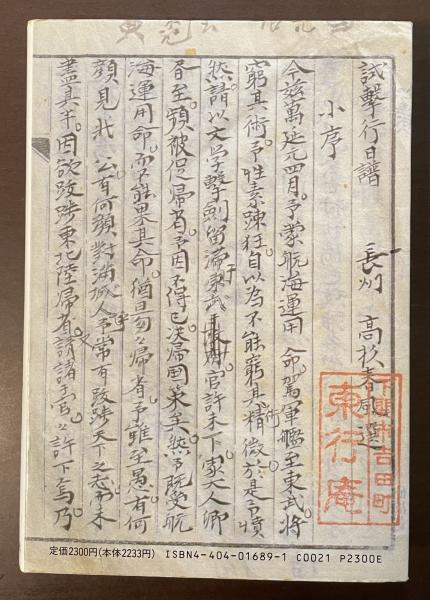 試撃行日譜　長州　高杉春風選
小序
今茲萬延元四月。予蒙航海運用　命。駕軍艦至東武。将
窮其術。予性素疎狂。自以為不能窮其精微。於是予憤
然請以文学撃劍留滞于東武。官許未下。家大人郷
書至。頻被促帰省。予因不得已決帰国策矣。然予既受航
海運用命。而不能果其命。猶易々帰省。予雖至愚。有何
顔見我　公。有何顔對満城人乎。予常有跋渉天下之志。而未
盡其半。因欲跋渉東北陸帰省。又請諸官。々許下焉。乃
下関市吉田町
東行庵
定価2300円(本体2233円)　ISBN4-404-01689-1 C0021 P2300E